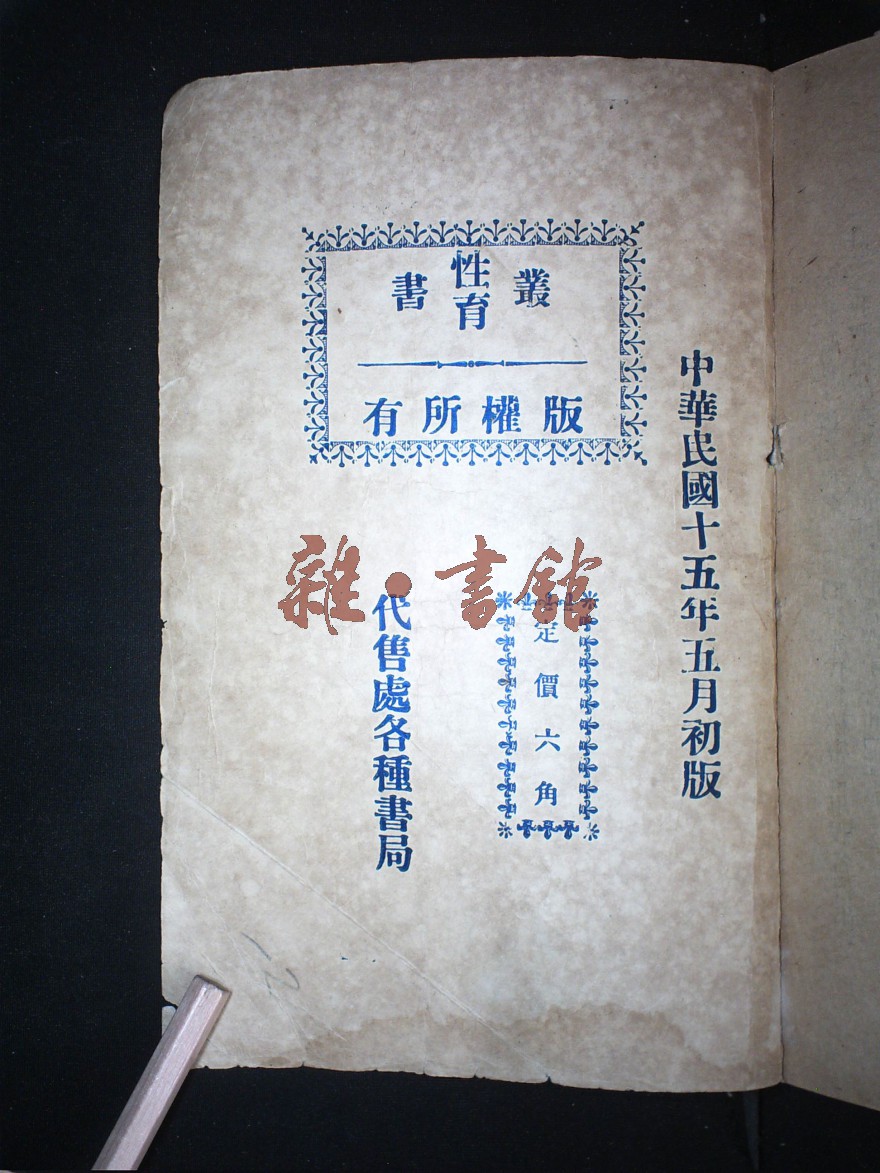 中華民國十五年五月初版
叢性育書
版權所有
定價六角
代售處各種書局
雜·書館